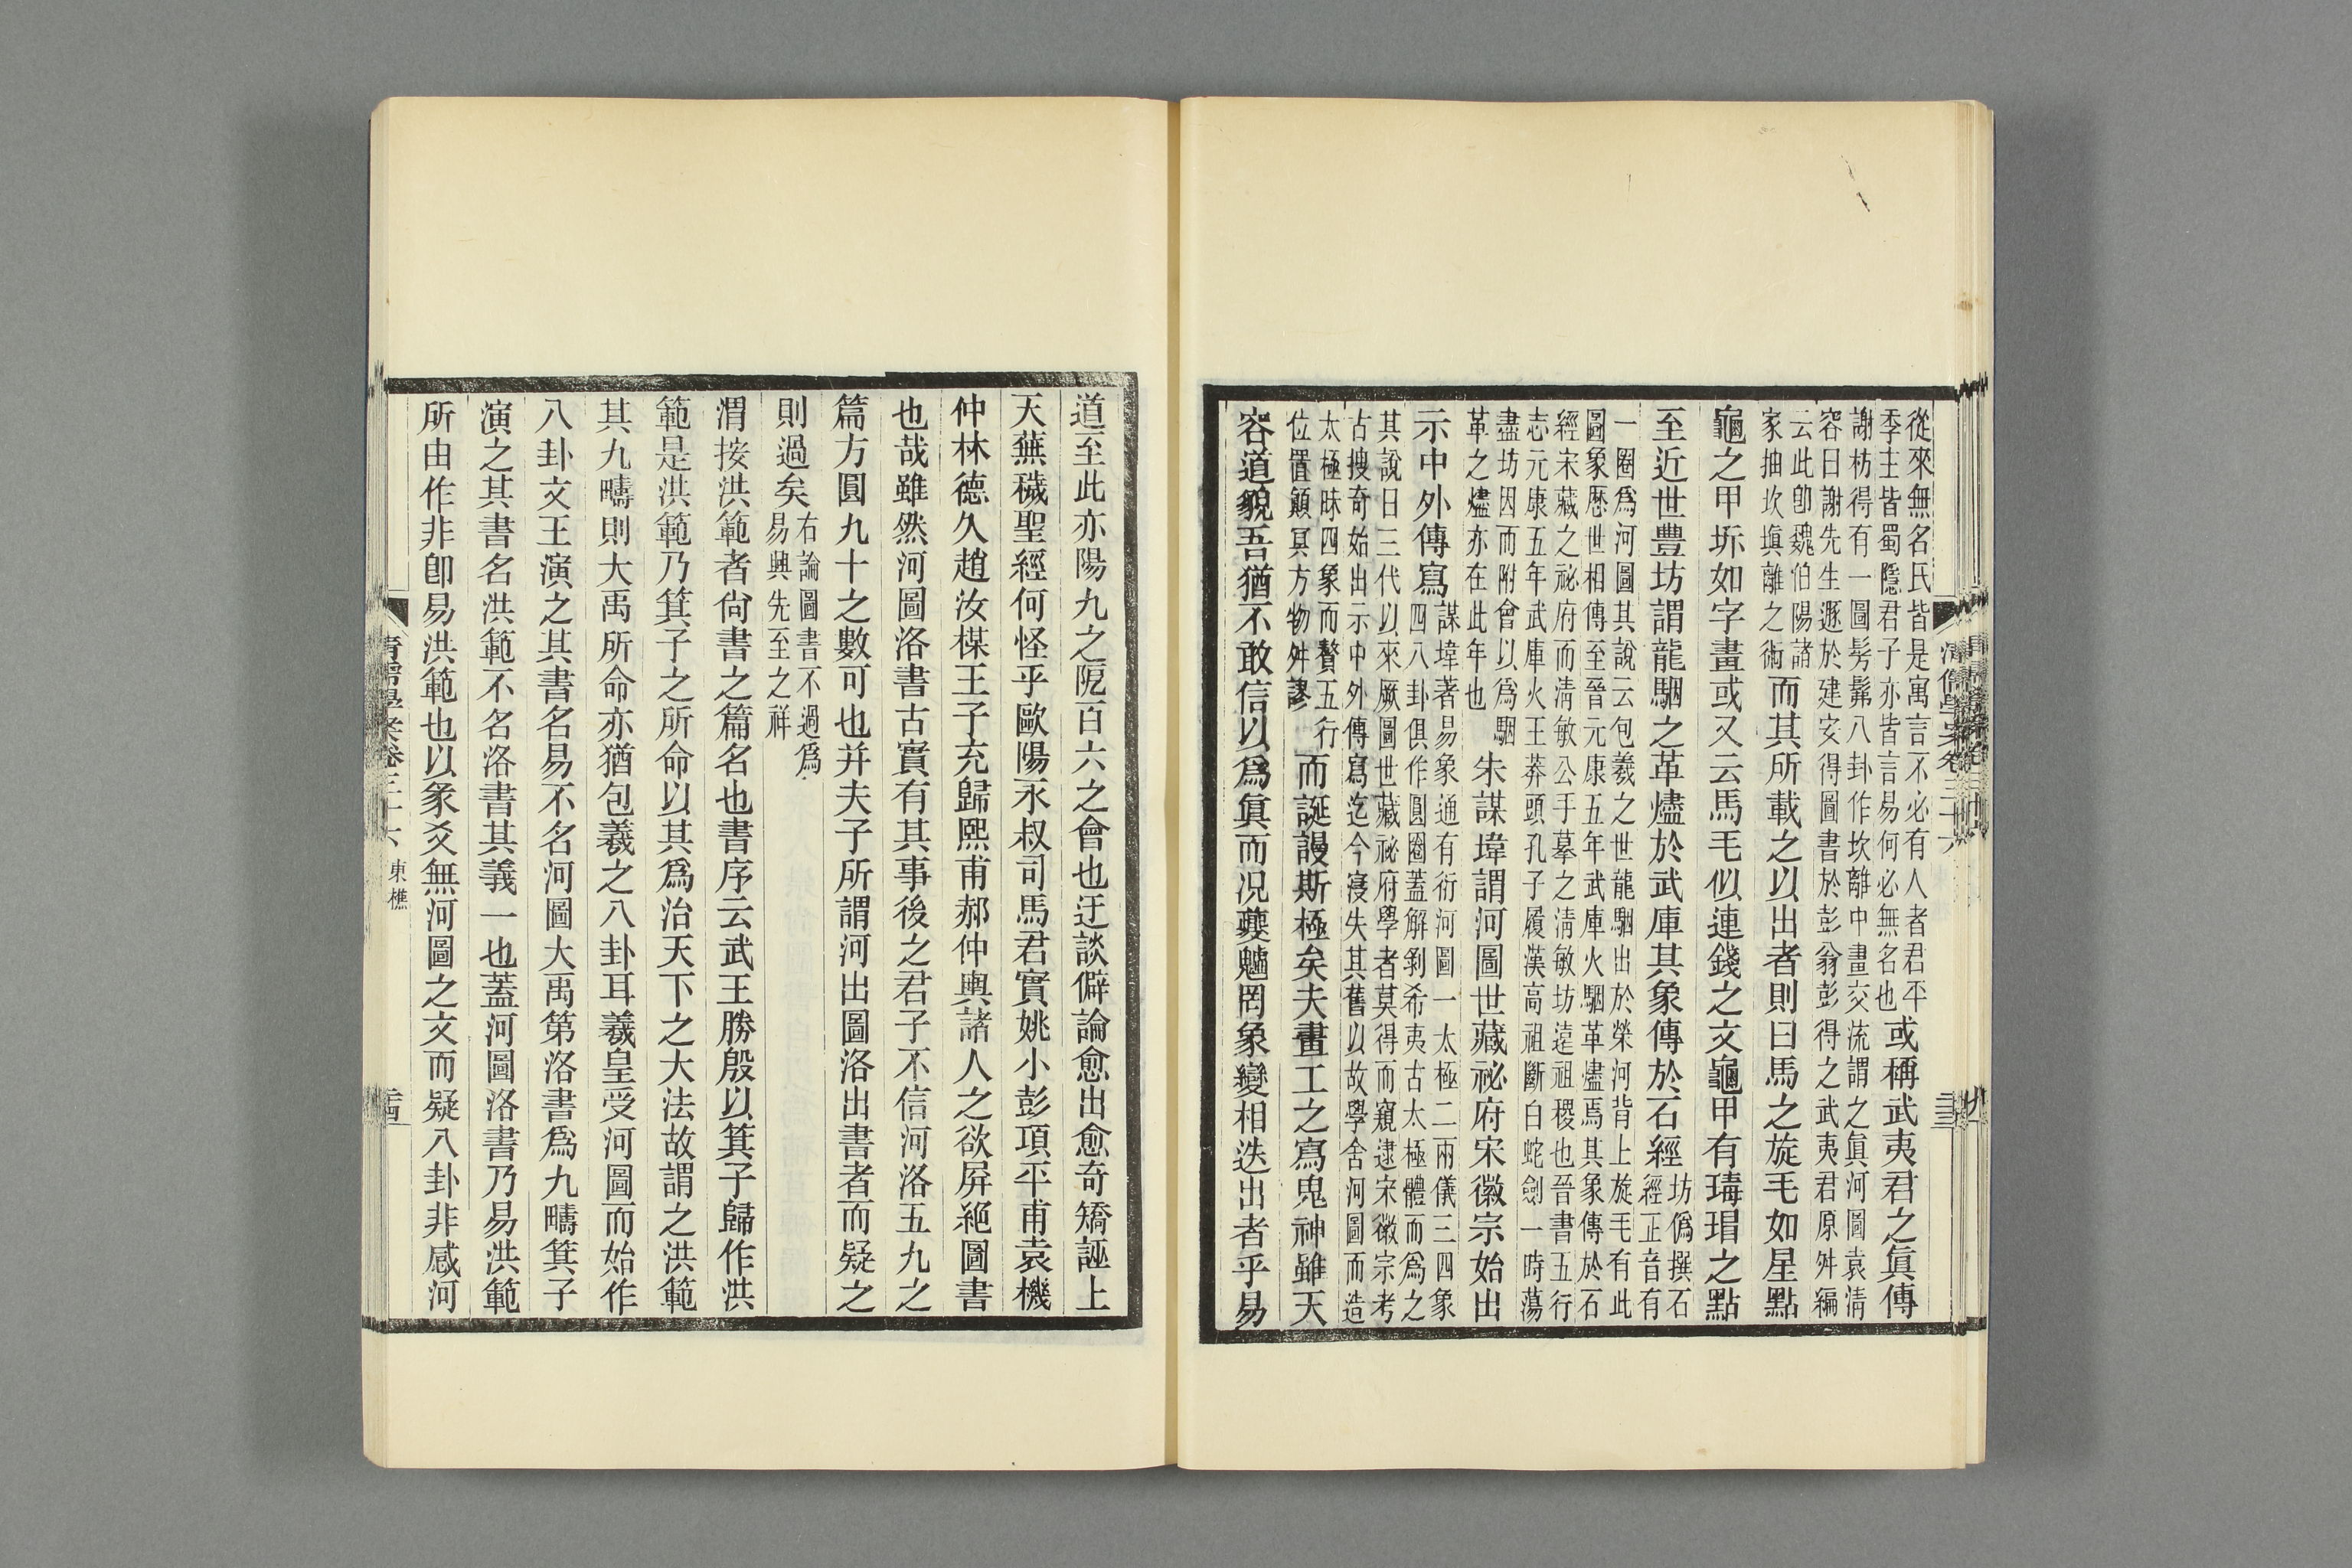 清儒學案卷三十六
二十三
從來無名氏皆是寓言不必有人者君平
季主皆蜀隱君子亦皆言易何必無名也
或稱武夷君之眞傳
謝枋得有一圖髣髴八卦作坎離中畫交流謂之眞河圖袁清
容曰謝先生遯於建安得圖書於彭翁彭得之武夷君原舛編
云此卽魏伯陽諸
家抽坎塡離之術
而其所載之以出者則曰馬之旋毛如星點
龜之甲坼如字畫或又云馬毛似連錢之文龜甲有瑇瑁之點
至近世豐坊謂龍駰之革燼於武庫其象傳於石經
坊僞撰石
經正音有
一圈爲河圖其說云包羲之世龍駰出於榮河背上旋毛有此
圖象歷世相傳至晉元康五年武庫火駰革燼焉其象傳於石
經宋藏之祕府而清敏公手摹之清敏坊遠祖稷也晉書五行
志元康五年武庫火王莽頭孔子履漢高祖斷白蛇劍一時蕩
盡坊因而附會以爲駰
革之燼亦在此年也
朱謀㙔謂河圖世藏祕府宋徽宗始出
示中外傳寫
謀㙔著易象通有衍河圖一太極二兩儀三四象
四八卦俱作圓圈蓋解剝希夷古太極體而爲之
其說曰三代以來厥圖世藏祕府學者莫得而窺逮宋徽宗考
古搜奇始出示中外傳寫迄今寖失其舊以故學舍河圖而造
太極昧四象而贅五行
位置顛冥方物舛謬
而誕謾斯極矣夫畫工之寫鬼神雖天
容道貌吾猶不敢信以爲眞而况夔魖罔象變相迭出者乎易
道至此亦陽九之阨百六之會也迂談僻論愈出愈奇矯誣上
天蕪穢聖經何怪乎歐陽永叔司馬君實姚小彭項平甫袁機
仲林德久趙汝楳王子充歸熙甫郝仲輿諸人之欲屏絕圖書
也哉雖然河圖洛書古實有其事後之君子不信河洛五九之
篇方圓九十之數可也并夫子所謂河出圖洛出書者而疑之
則過矣
右論圖書不過爲
易興先至之祥
渭按洪範者尙書之篇名也書序云武王勝殷以箕子歸作洪
範是洪範乃箕子之所命以其爲治天下之大法故謂之洪範
其九疇則大禹所命亦猶包羲之八卦耳羲皇受河圖而始作
八卦文王演之其書名易不名河圖大禹第洛書爲九疇箕子
演之其書名洪範不名洛書其義一也蓋河圖洛書乃易洪範
所由作非卽易洪範也以象爻無河圖之文而疑八卦非感河
清儒學案卷三十六
東樵
二十四